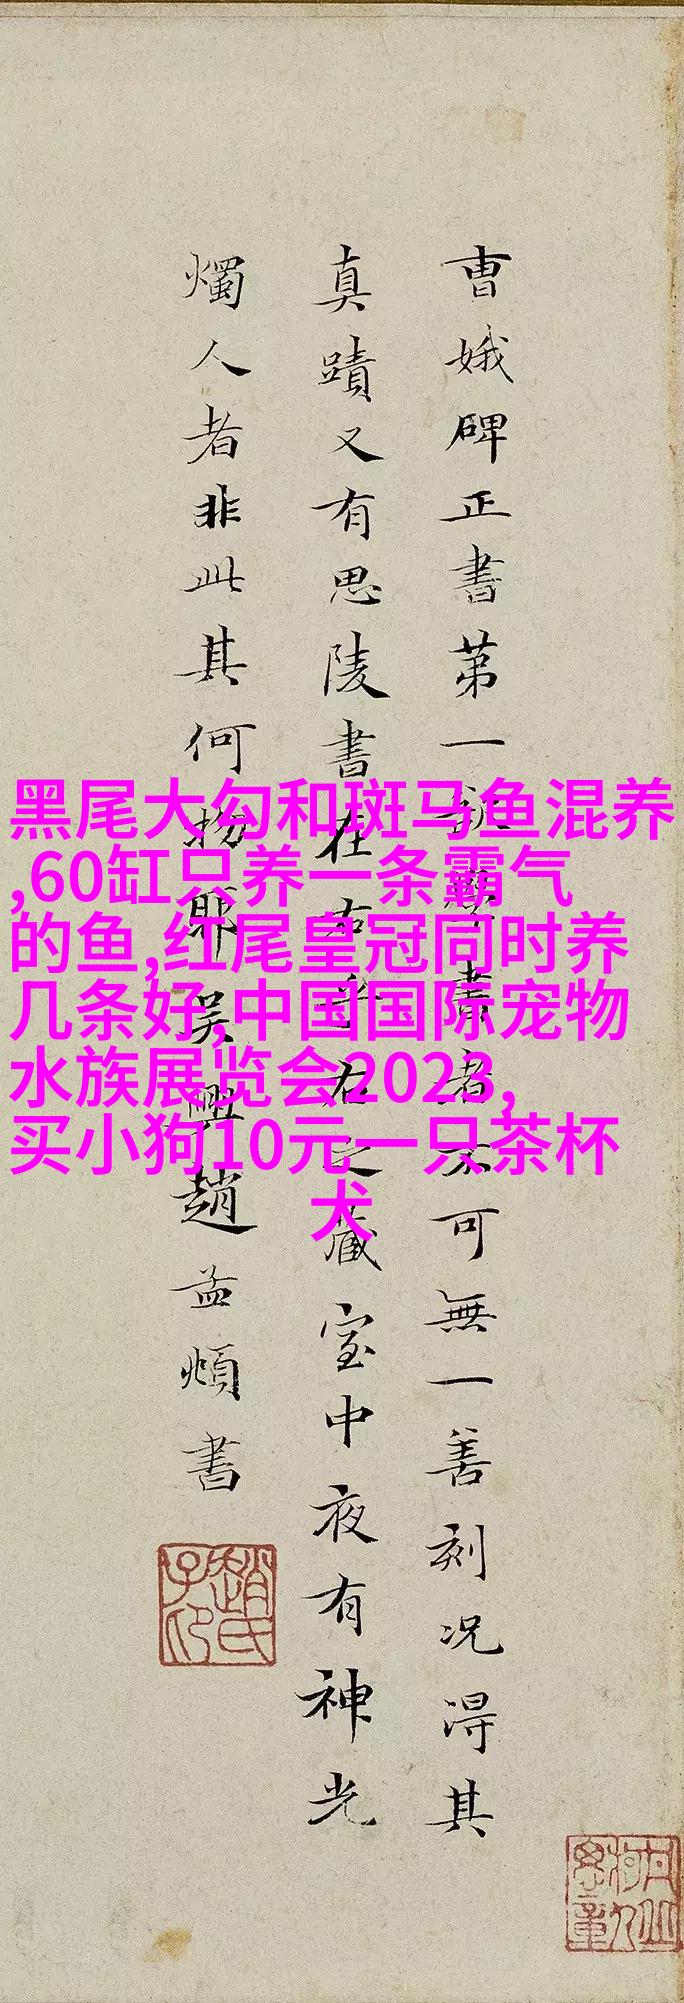 曹娥碑正書第一欲學書者不可無一善刻況得其
真蹟又有思陵書在右乎右之藏室中夜有神光
燭人者非此其何物耶吴興趙孟頫書
黑尾大勾和斑马鱼混养
,60缸只养一条霸气
的鱼,红尾皇冠同时养
几条好,中国国际宠物
水族展览会2023,
买小狗10元一只茶杯
犬